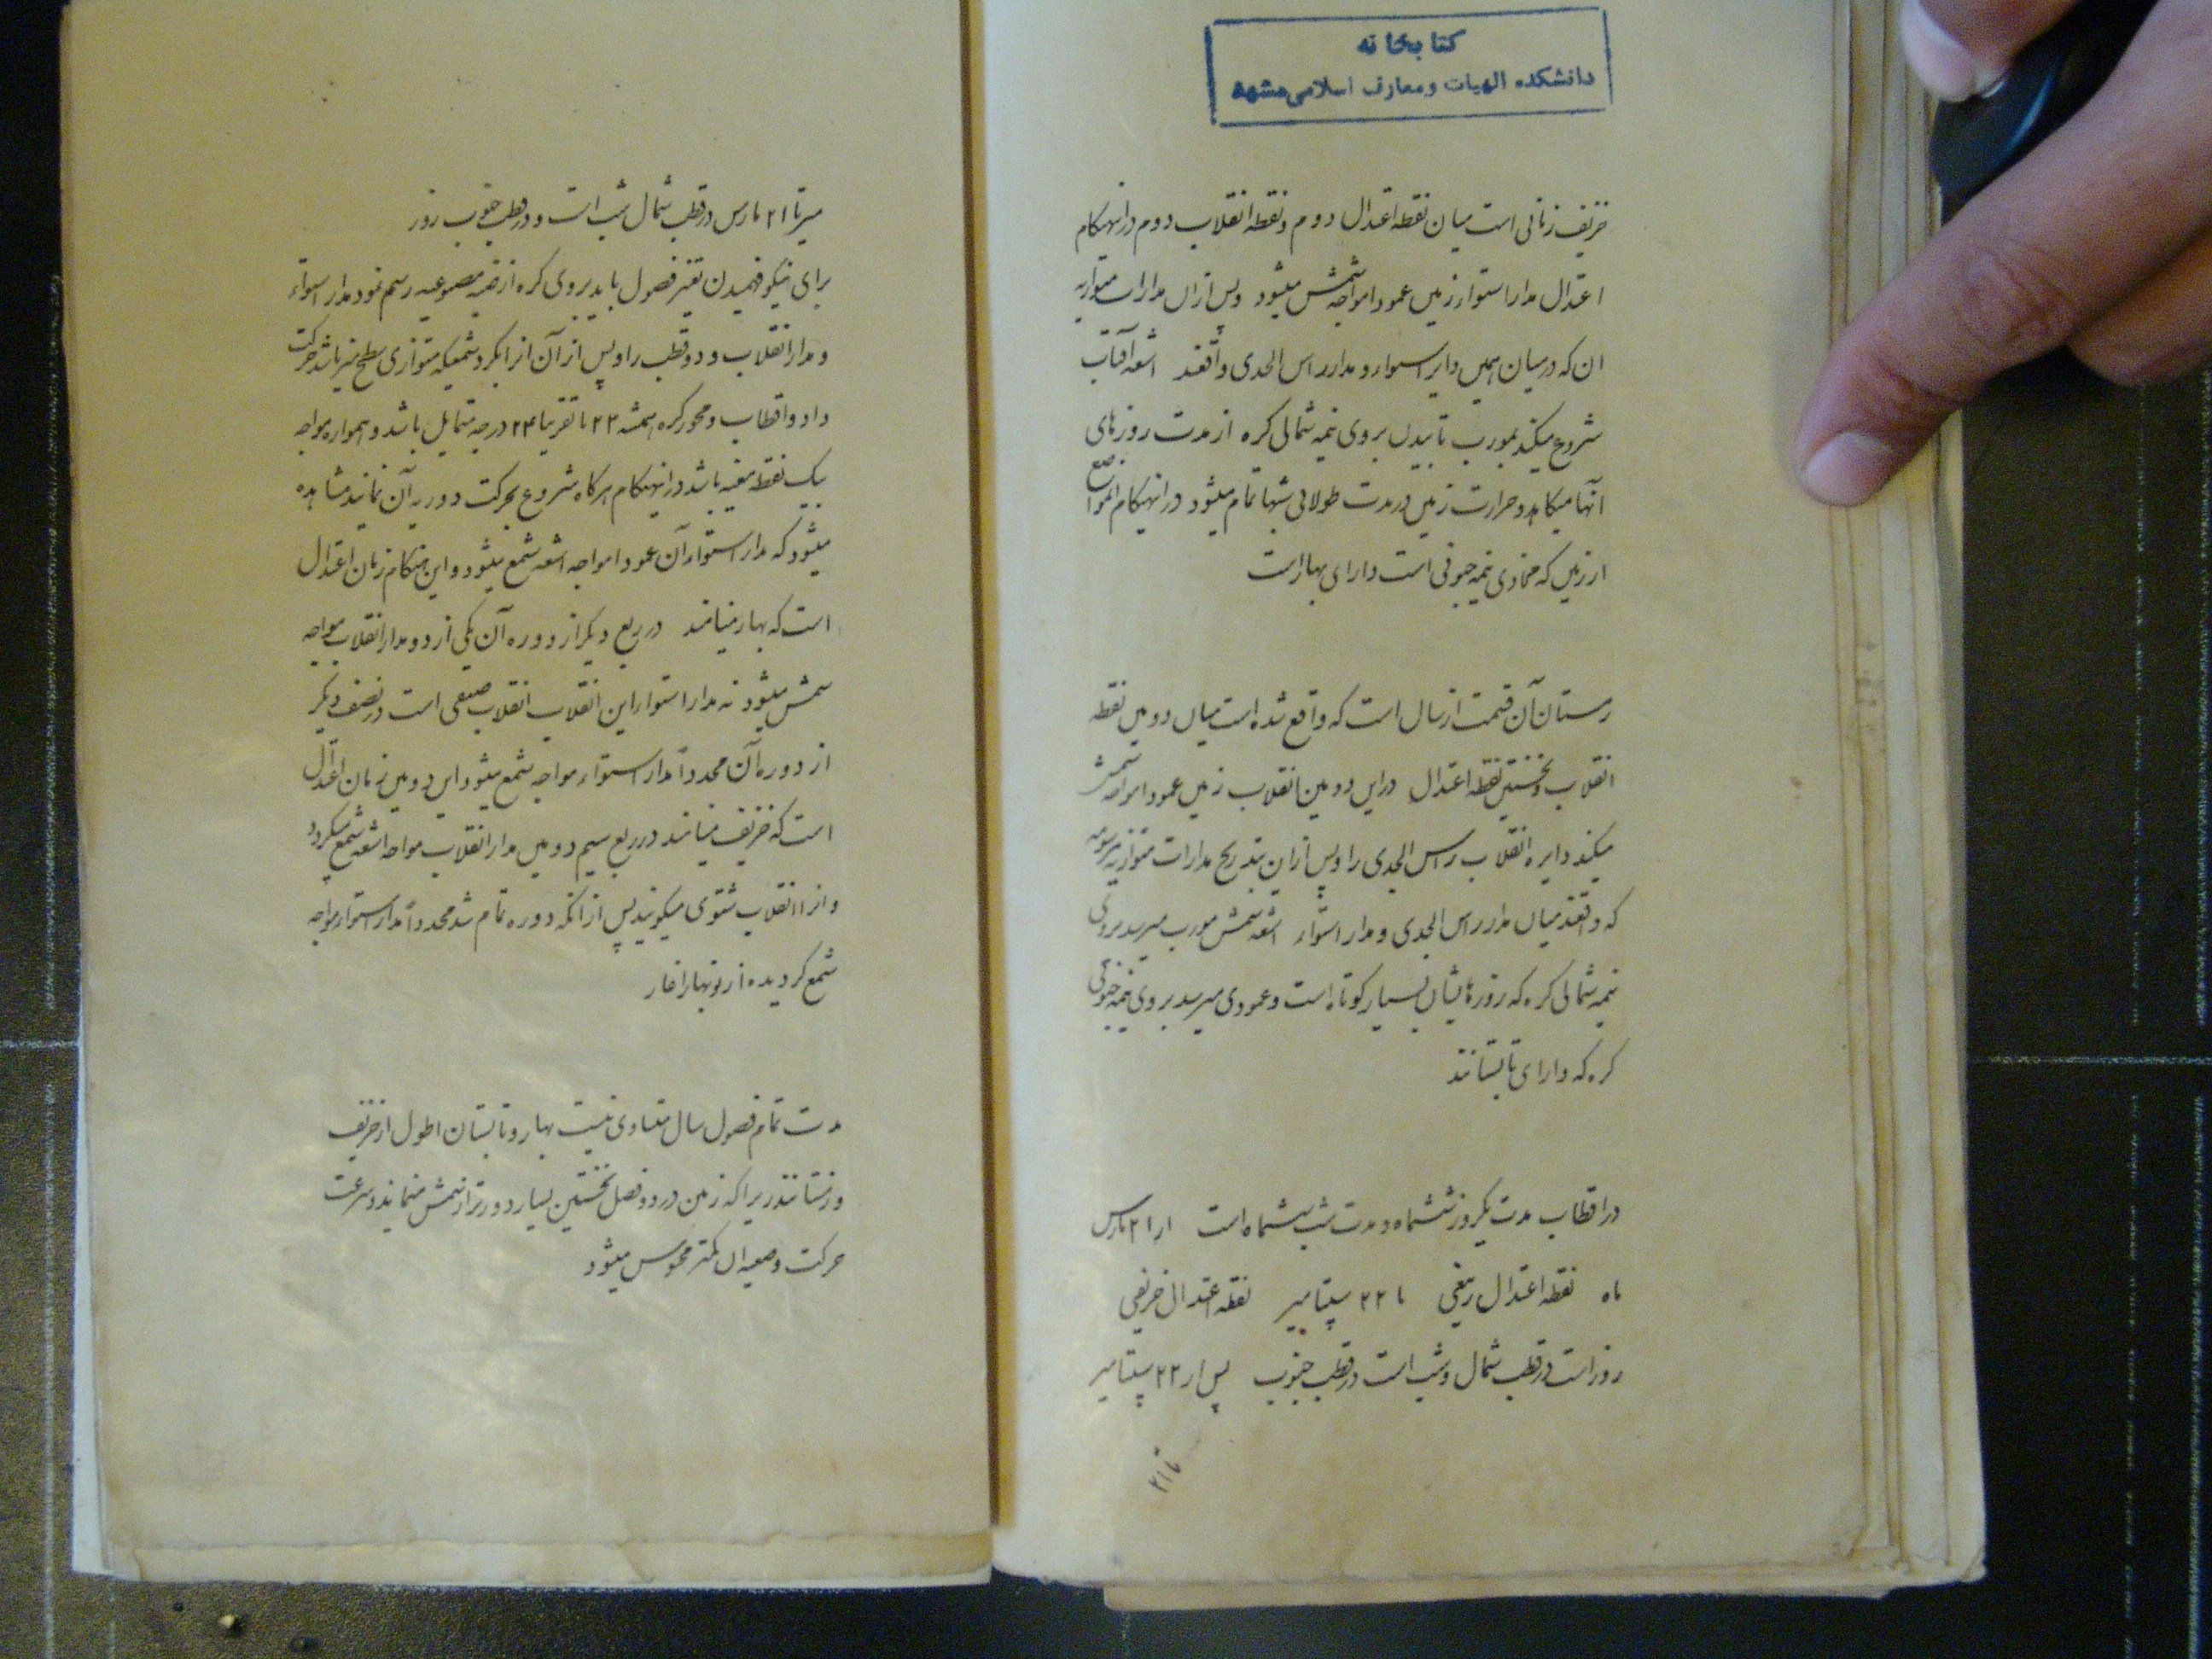 کتابخانه
دانشکده الهیات و معارف اسلامی مشهد
خریف زمانی است میان نقطه اعتدال دوم و نقطه انقلاب دوم درانهنکام
اعتدال مدار استواء زمین عمودا مواجه شمش میشود و پس ازان مدارات متوازیه
ان که درمیان همین دایر استواء و مدار راس الجدی واقفند اشعه آفتاب
شروع میکند بمورب تابیدن بروی نیمه شمالی کره از مدت روزهای
آنها میکاهد و حرارت زمین درمدت طولانی شبها تمام میشود درانهنکام المواضع
از زمین که محاذی نیمه جنوبی است دارای بهار است
زمستان آن قسمت از سال است که واقع شده است میان دومین نقطه
انقلاب و نخستین نقطه اعتدال دراین دومین انقلاب زمین عمودا مواجه شمش
میکند دایره انقلاب راس الجدی را و پس ازان بتدریج مدارات متوازیه مرسومه
که واقعند میان مدار راس الجدی و مدار استواء اشعه شمش مورب میرسد بروی
نیمه شمالی کره که روزهایشان بسیار کوتاه است و عمودی میرسد بروی نیمه جنوبی
کره که دارای تابستانند
دراقطاب مدت یکروز ششماه و مدت شب ششماه است از ۲۱ مارس
ماه نقطه اعتدال ربیعی تا ۲۲ سپتامبر نقطه اعتدال خریفی
روز است درقطب شمال و شب است درقطب جنوب پس از ۲۲ سپتامبر
تا ۲۱
میر تا ۲۱ مارس درقطب شمال شب است و درقطب جنوب روز
برای نیکو فهمیدن تغیر فصول باید بروی کره ارضیه مصنوعیه رسم نمود مدار استواء
و مدار انقلاب و دو قطب را و پس از آن انرا بکرد شمعیکه متوازی سطح میز باشد حرکت
داد و اقطاب و محور کره همیشه ۲۳ تا تقریبا ۲۴ درجه متمایل باشد و همواره مواجه
یک نقطه معینه باشد درانهنکام هرکاه شروع بحرکت دوریه آن نمایند مشاهده
میشود که مدار استواء آن عمودا مواجه اشعه شمع میشود و این هنکام زمان اعتدال
است که بهار مینامند در ربع دیکر از دوره آن یکی از دو مدار انقلاب مواجه
شمش میشود نه مدار استوار این انقلاب انقلاب صیفی است در نصف دیکر
از دوره آن مجدداً مدار استواء مواجه شمع میشود این دومین زمان اعتدال
است که خریف مینامند درربع سیم دومین مدار انقلاب مواجه اشعه شمع میکردد
و انرا انقلاب شتوی میکویند پس ازانکه دوره تمام شد مجدداً مدار استواء مواجه
شمع کردیده از نو بهار اغاز
مدت تمام فصول سال متساوی نیست بهار و تابستان اطول از خریف
و زمستانند زیرا که زمین در دو فصل نخستین بسیار دورتر از شمش میماند و سرعت
حرکت وضعیه ان کمتر محسوس میشود